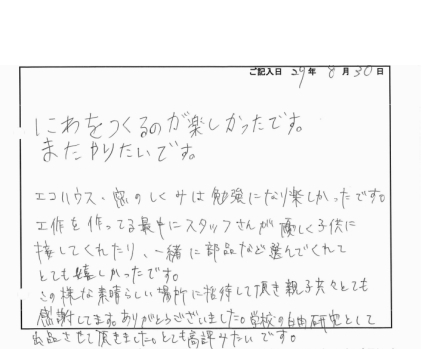 ご記入日 29年 8月30日
にわをつくるのが楽しかったです。
またやりたいです。
エコハウス、窓のしくみは勉強になり楽しかったです。
工作を作ってる最中にスタッフさんが優しく子供に
接してくれたり、一緒に部品など選んでくれて
とても嬉しかったです。
この様な素晴らしい場所に招待して頂き親子共々とても
感謝してます。ありがとうございました。学校の自由研究として
出品させて頂きました。とても高評みたいです。